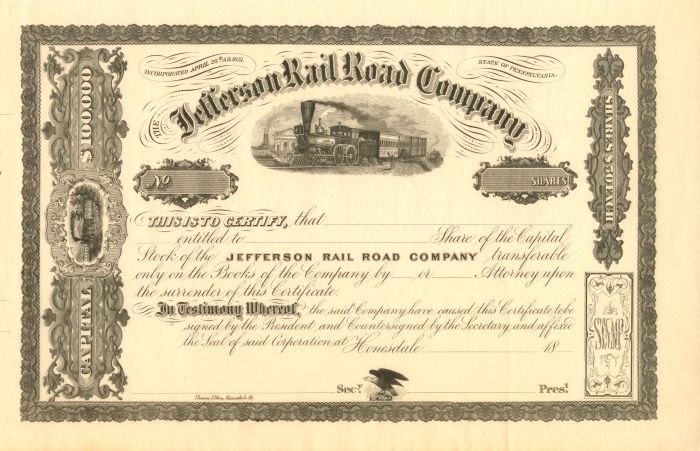 INCORPORATED APRIL 28th A.D. 1851.
STATE OF PENNSYLVANIA.
THE Jefferson Rail Road Company
CAPITAL $100,000
SHARES $50 EACH
No
SHARES
THIS IS TO CERTIFY, that
entitled to Share of the Capital
Stock of the JEFFERSON RAIL ROAD COMPANY transferable
only on the Books of the Company by or Attorney upon
the surrender of this Certificate.
In Testimony Whereof, the said Company have caused this Certificate to be
signed by the President and Countersigned by the Secretary and affixed
the Seal of said Corporation, at Honesdale 18
Secy.
Prest.